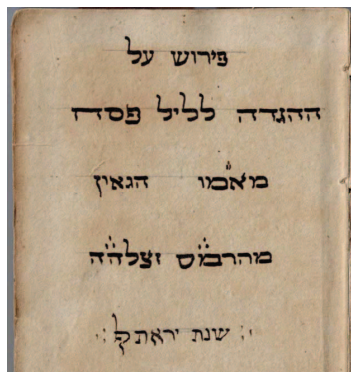 פירוש על
ההגדה לליל פסח
מא״מו הגאון
מהרמ״ס זצלה״ה
שנת